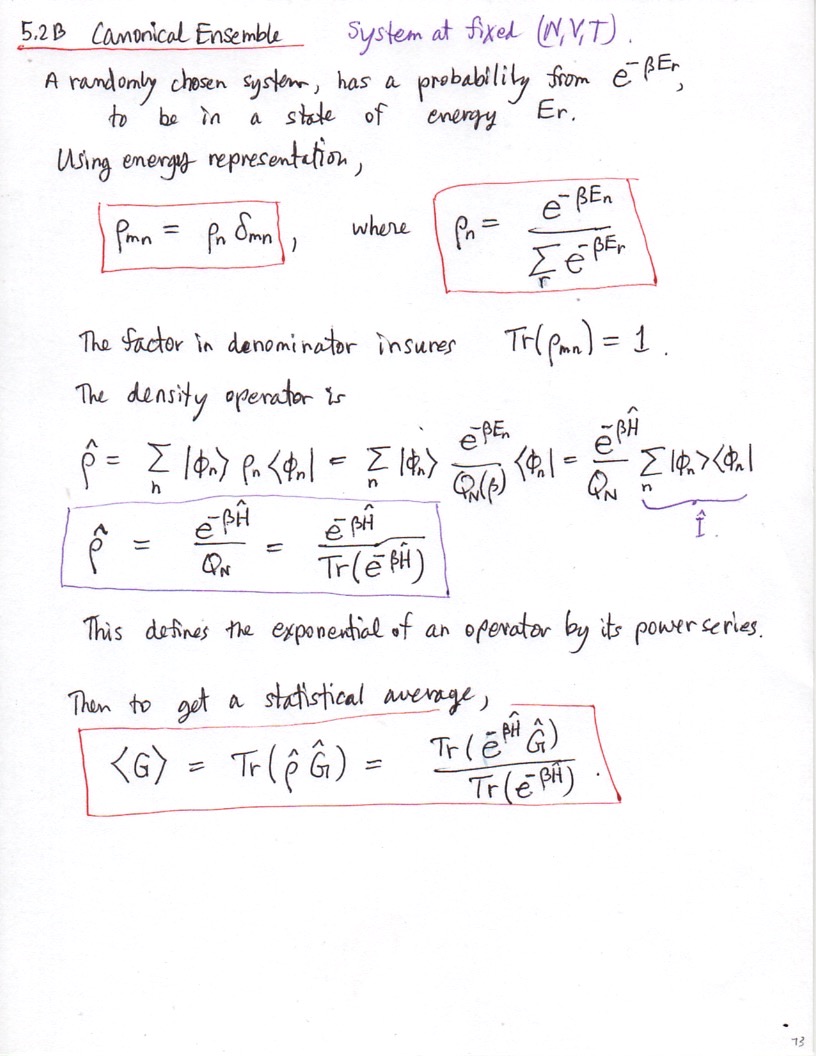 5.2B Canonical Ensemble System at fixed (N,V,T).
A randomly chosen system, has a probability from e^{-βE_r},
to be in a state of energy E_r.
Using energy representation,
ρ_{mn} = ρ_n δ_{mn}, where ρ_n = e^{-βE_n} / Σ_r e^{-βE_r}
The factor in denominator insures Tr(ρ_{mn}) = 1.
The density operator is
ρ̂ = Σ_n |ϕ_n⟩ ρ_n ⟨ϕ_n| = Σ_n |ϕ_n⟩ e^{-βE_n} / Q_N(β) ⟨ϕ_n| = e^{-βĤ} / Q_N Σ_n |ϕ_n⟩⟨ϕ_n|
Î.
ρ̂ = e^{-βĤ} / Q_N = e^{-βĤ} / Tr(e^{-βĤ})
This defines the exponential of an operator by its power series.
Then to get a statistical average,
⟨G⟩ = Tr(ρ̂ Ĝ) = Tr(e^{-βĤ} Ĝ) / Tr(e^{-βĤ}).
73